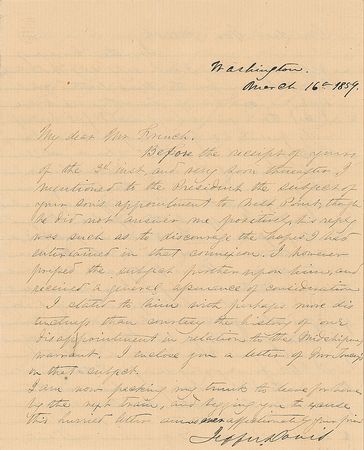 Washington.
March 16th 1859.
My dear Mr French.
Before the receipt of yours
of the 3d inst. and very soon thereafter I
mentioned to the President the subject of
your son's appointment to West Point, though
he did not answer me positively, his reply
was such as to discourage the hopes I had
entertained in that connexion. I however
pressed the subject further upon him, and
received a general assurance of consideration
I stated to him with perhaps more dis
tinctness than courtesy the history of our
disappointment in relation to the Michigan
warrant. I enclose you a letter of
on that subject.
I am now packing my trunk to leave for home
by the next train, and begging you to excuse
this hurried letter am as ever affectionately your friend
Jeffer. Davis